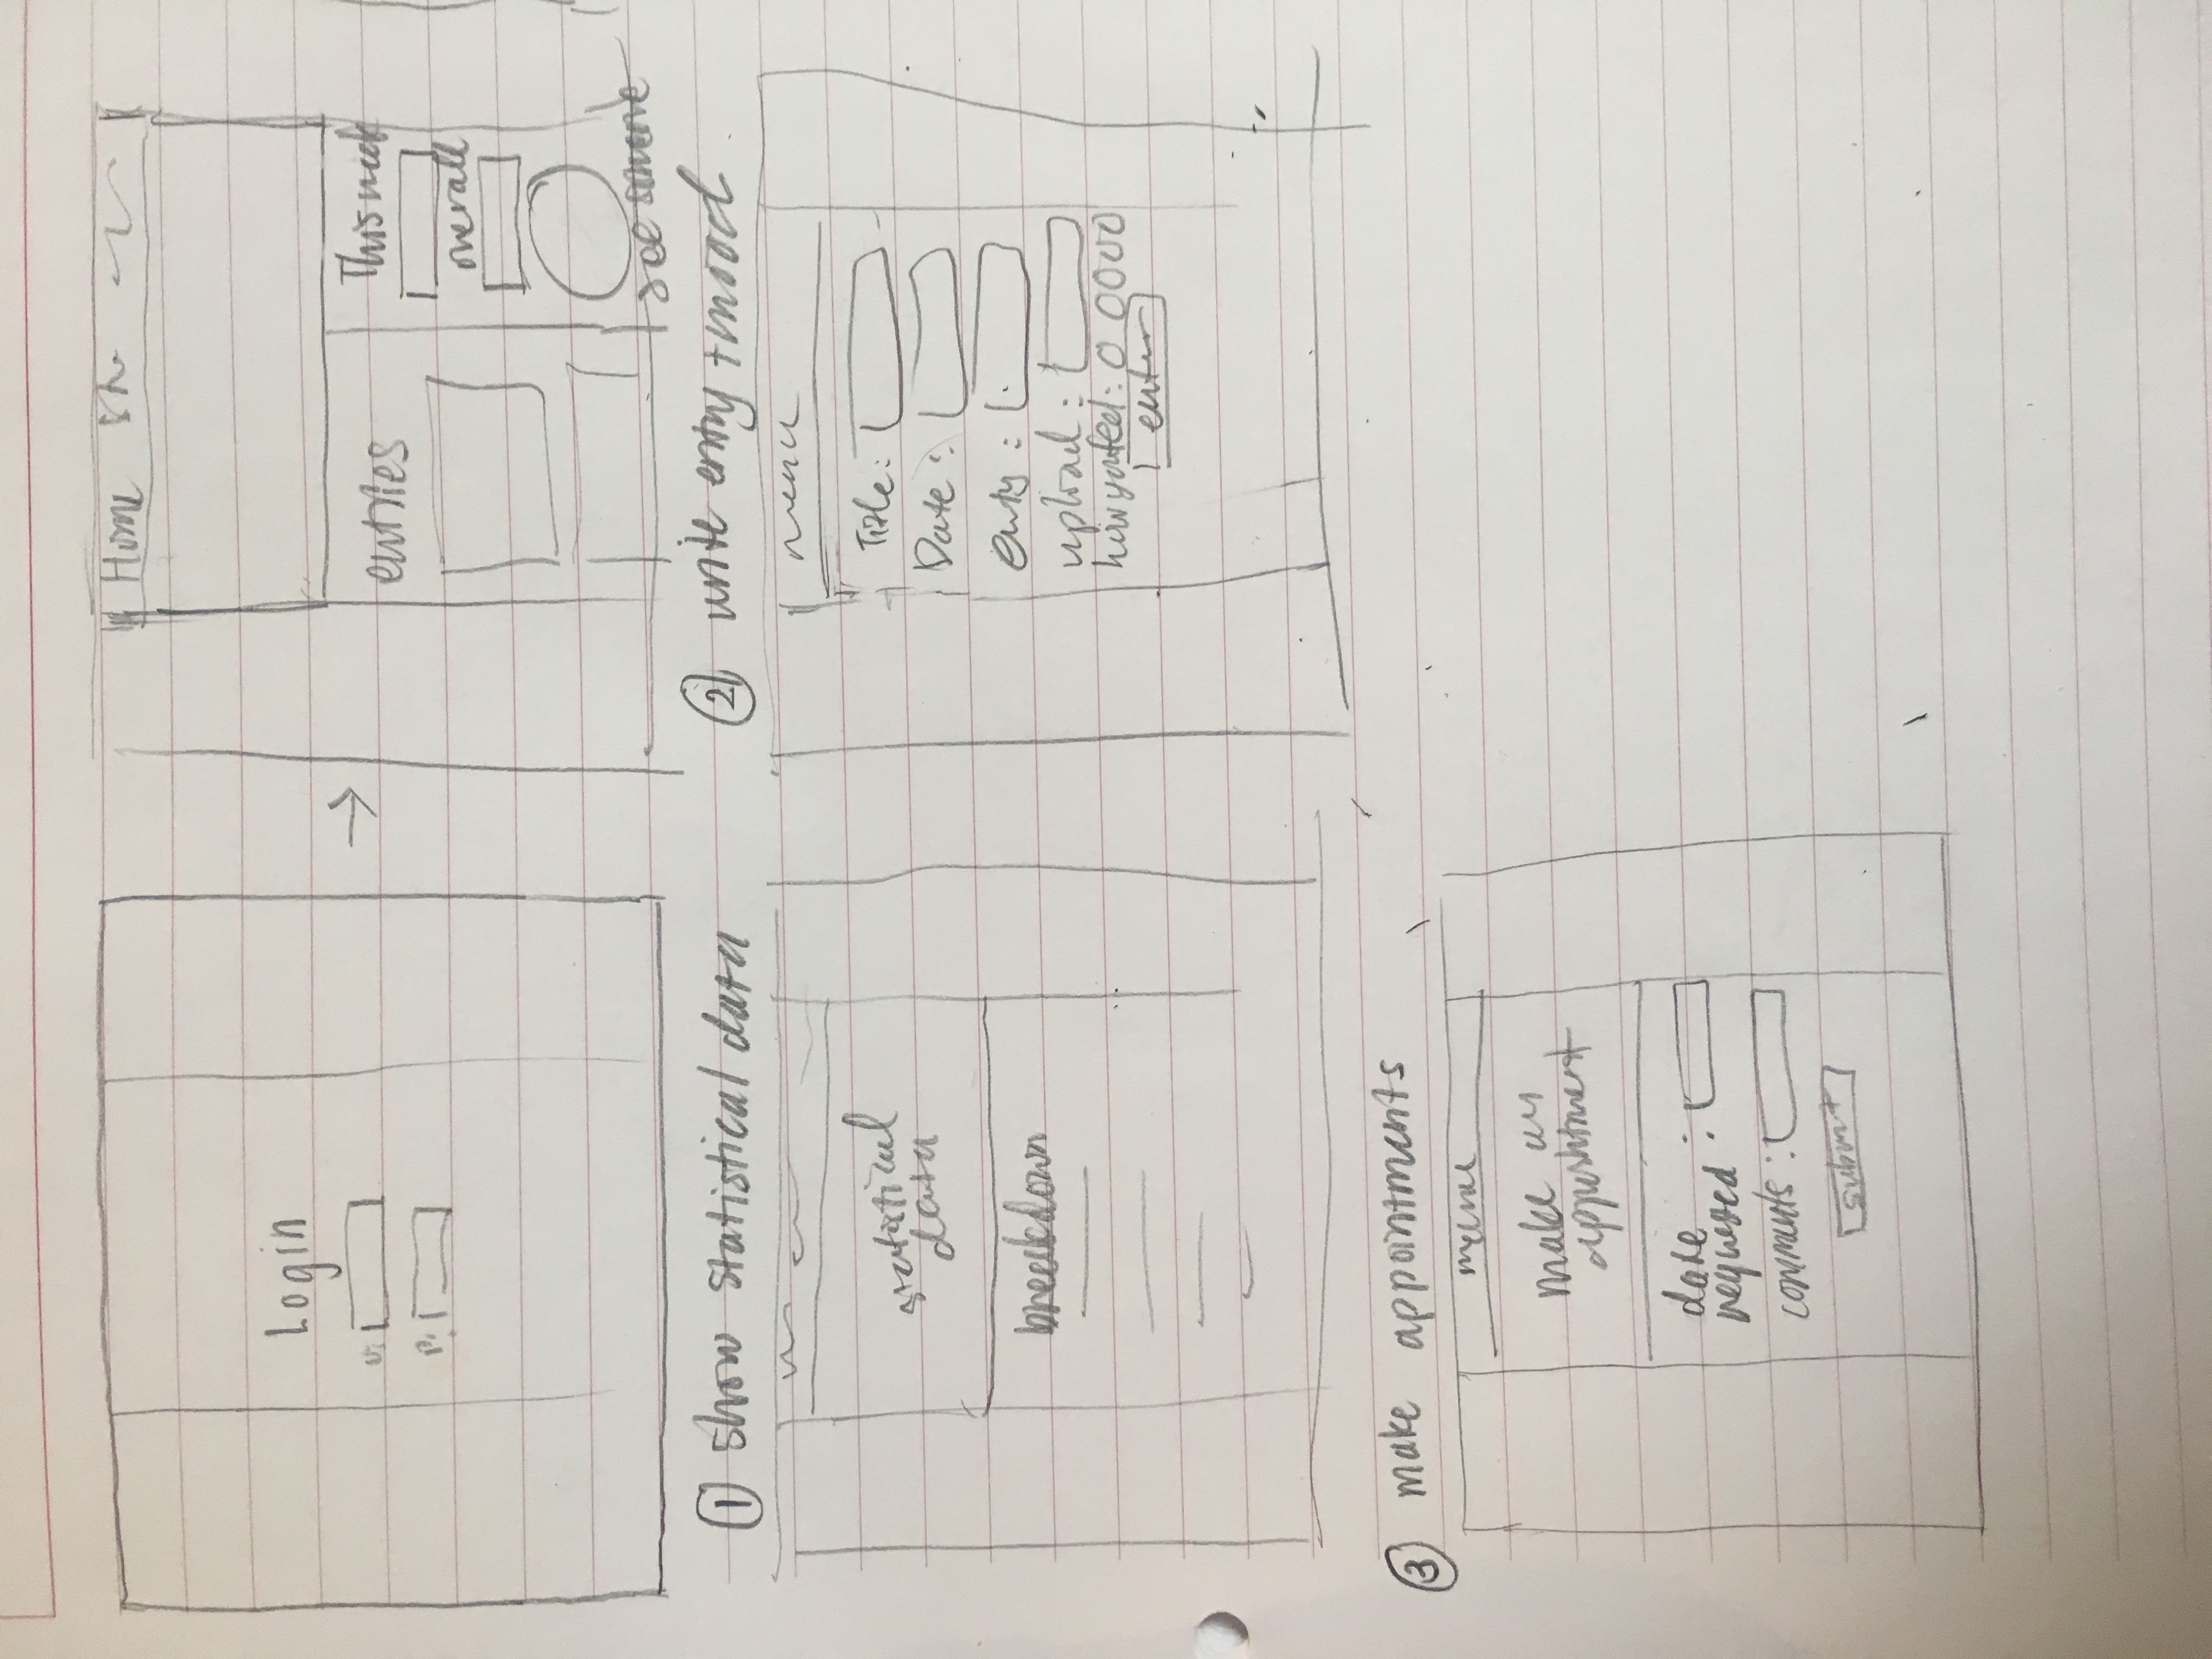 Login
u:
p:
Home
entries
This week
overall
see someone
① show statistical data
statistical
data
breakdown
② write entry + mood
menu
Title:
Date:
entry:
upload:
how you feel:
enter
③ make appointments
menu
make an
appointment
date
requested:
comments:
submit